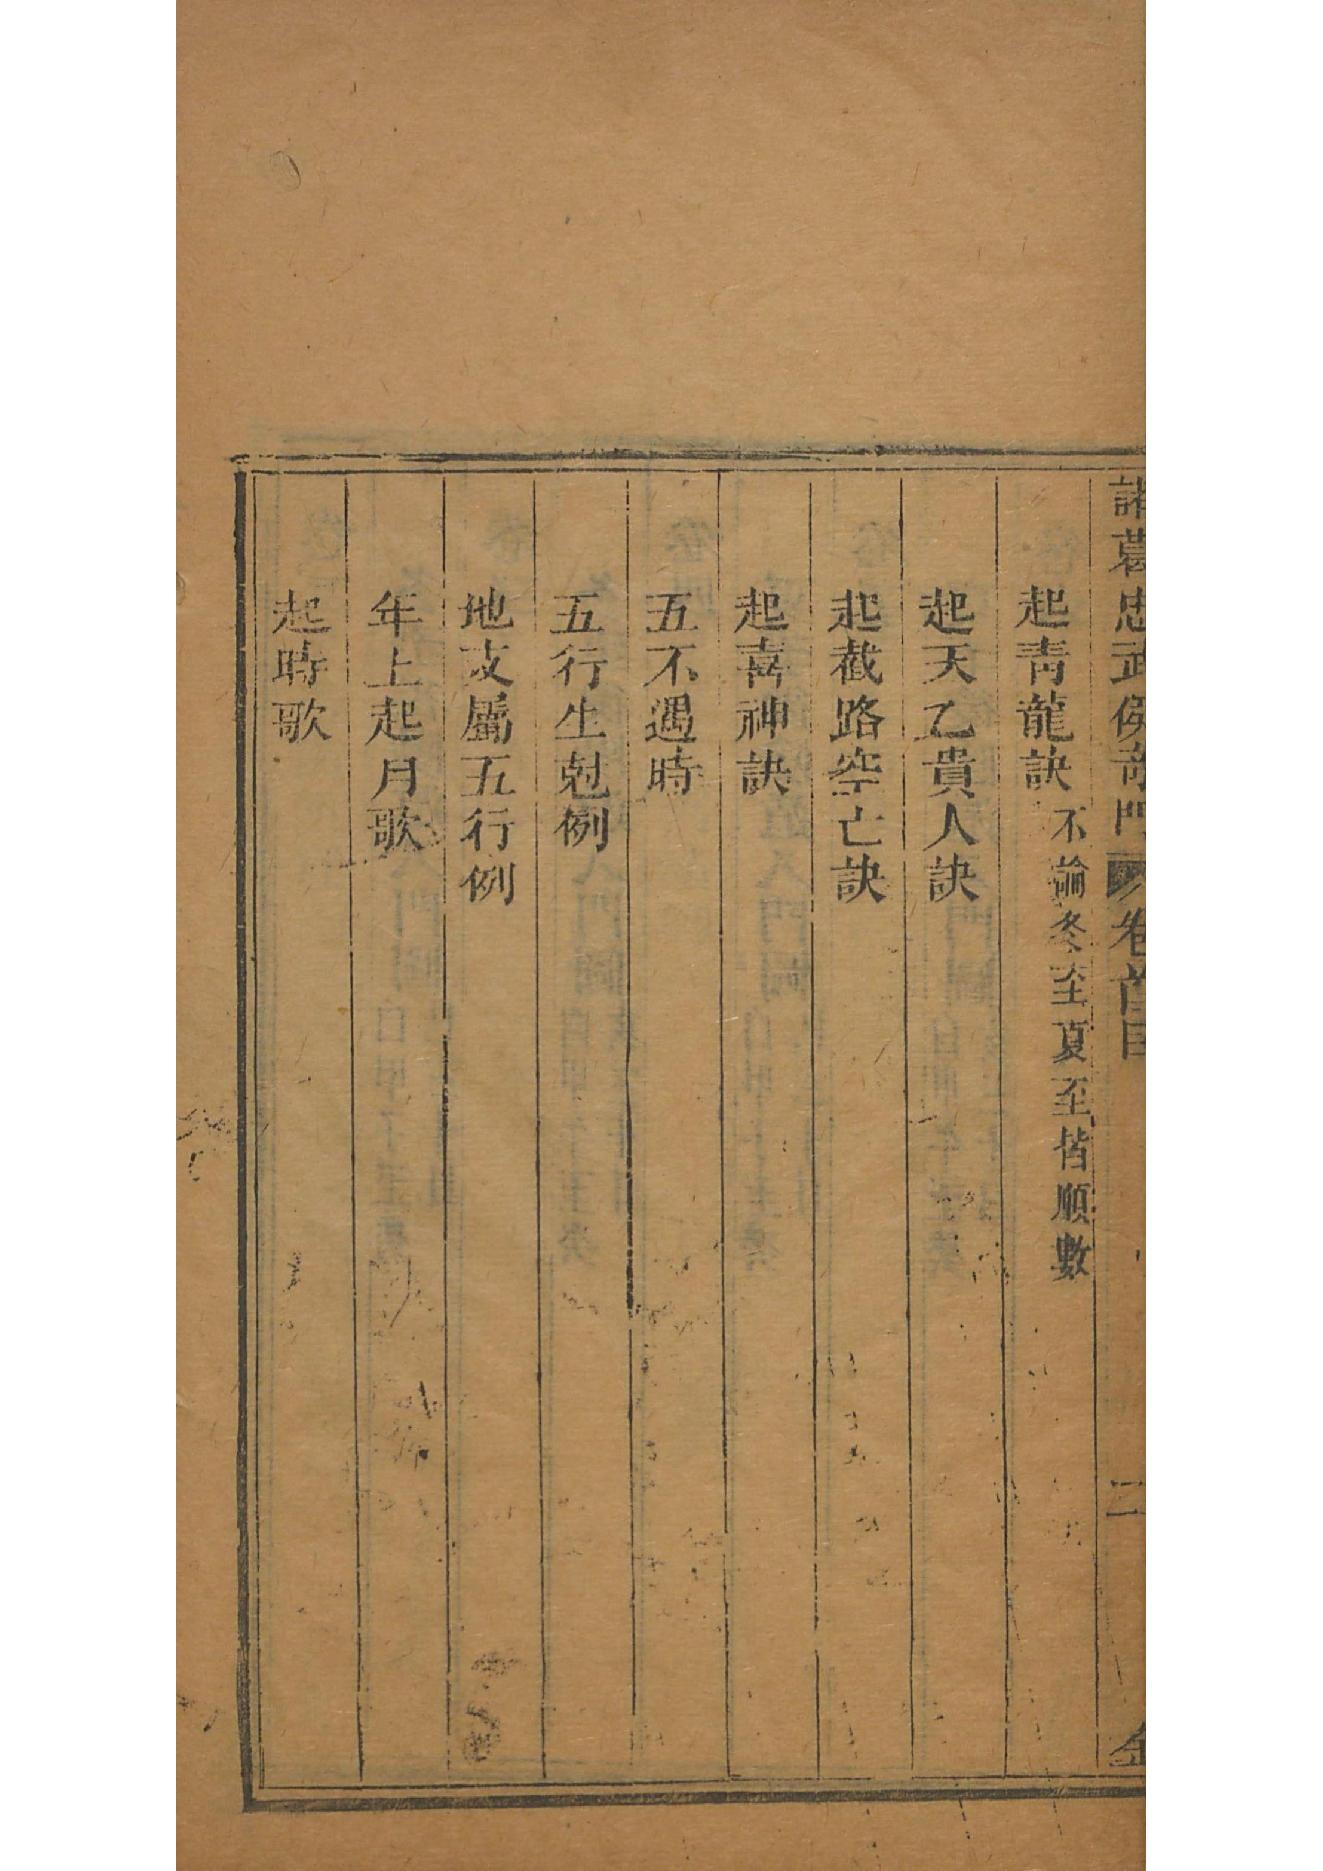 諸葛忠武侯奇門 卷首目 二
起青龍訣 不論冬至夏至皆順數
起天乙貴人訣
起截路空亡訣
起喜神訣
五不遇時
五行生尅例
地支屬五行例
年上起月歌
起時歌